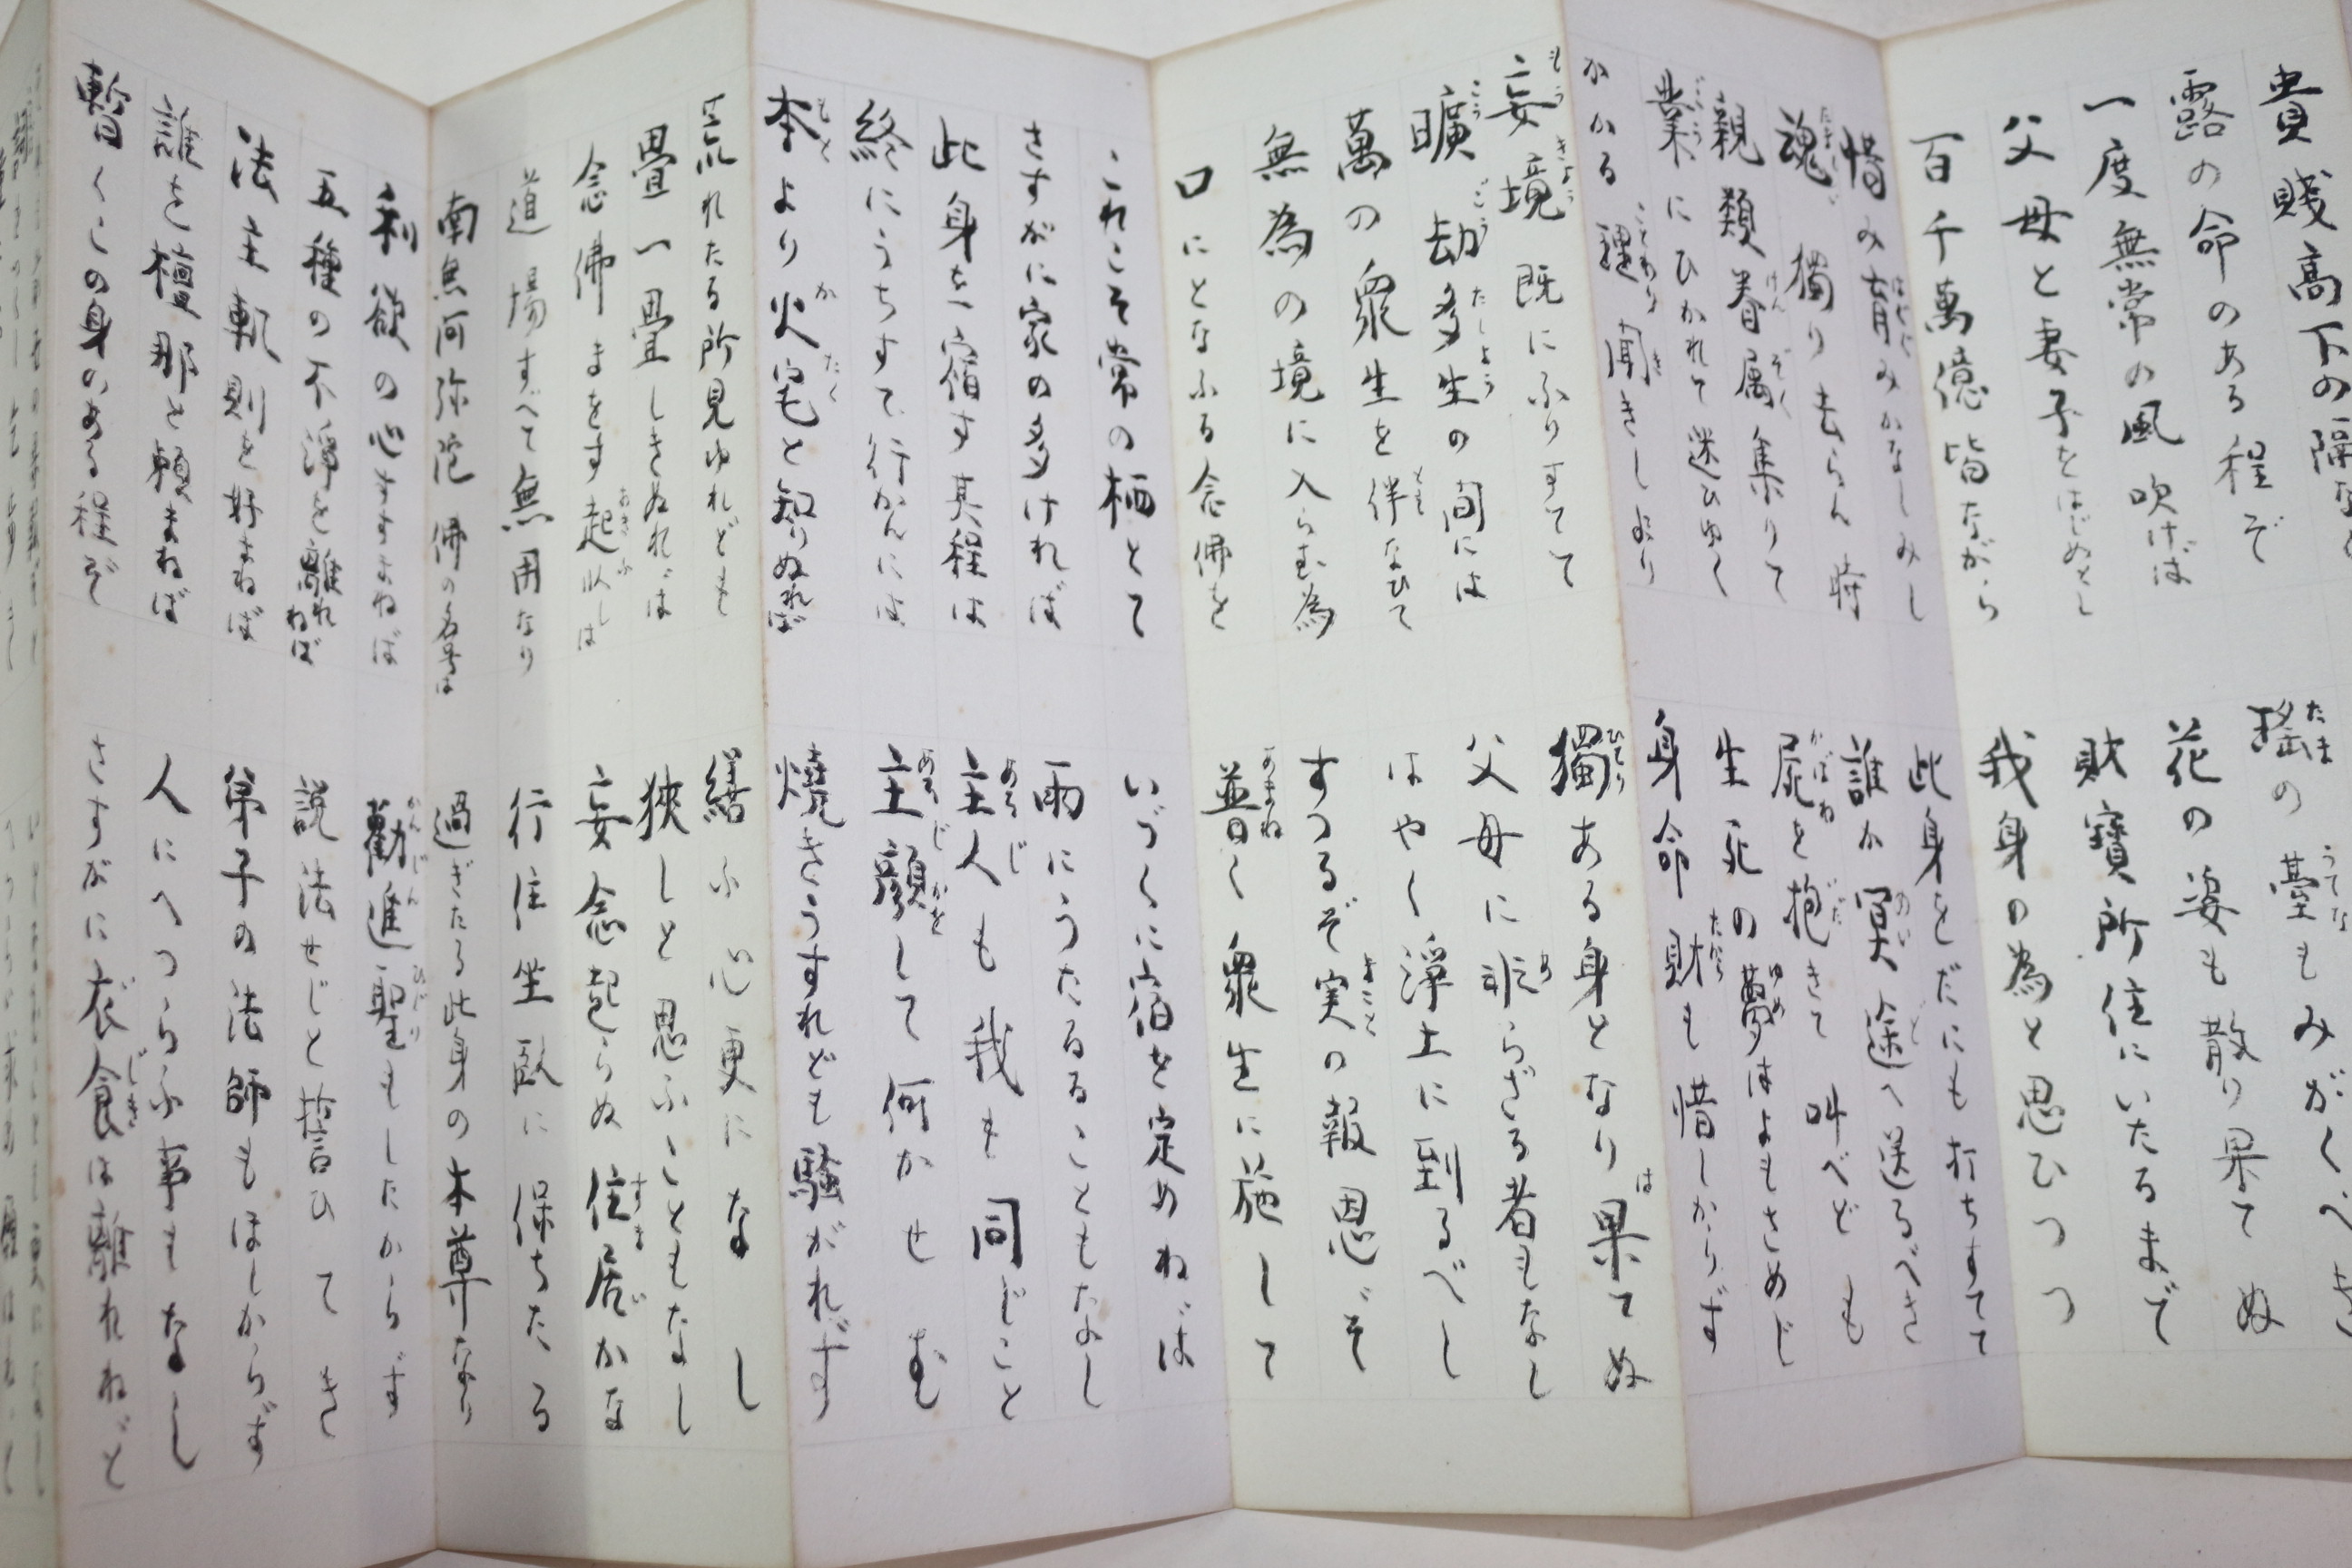 貴賤高下の隔な
露の命のある程ぞ　瑶の臺もみがくべき
一度無常の風吹けば　花の姿も散り果てぬ
父母と妻子をはじめとし　財寶所住にいたるまで
百千萬億皆ながら　我身の為と思ひつつ
惜み育みかなしみし　此身をだにも打ちすてて
魂獨り去らん時　誰か冥途へ送るべき
親類眷属集りて　屍を抱きて叫べども
業にひかれて迷ひゆく　生死の夢はよもさめじ
かかる理聞きしより　身命財も惜しからず
妄境既にふりすてて　獨ある身となり果てぬ
曠劫多生の間には　父母に非らざる者もなし
萬の衆生を伴なひて　はやく淨土に到るべし
無為の境に入らむ為　すつるぞ実の報恩ぞ
口にとなふる念佛を　普く衆生に施して
これこそ常の栖とて　いづくに宿を定めねば
さすがに家の多ければ　雨にうたるることもなし
此身を宿す其程は　主人も我も同じこと
終にうちすて行かんには　主顔して何かせむ
本より火宅と知りぬれば　燒きうすれども騒がれず
荒れたる所見ゆれども　繕ふ心更になし
畳一畳しきぬれば　狹しと思ふこともなし
念佛まをす起臥しは　妄念起らぬ住居かな
道場すべて無用なり　行住坐臥に保ちたる
南無阿弥陀佛の名号は　過ぎたる此身の本尊なり
利欲の心すすまねば　勸進聖もしたからず
五種の不淨を離れねば　説法せじと誓ひてき
法主軌則を好まねば　弟子の法師もほしからず
誰を檀那と頼まねば　人にへつらふ事もなし
暫くこの身のある程ぞ　さすがに衣食は離れねど